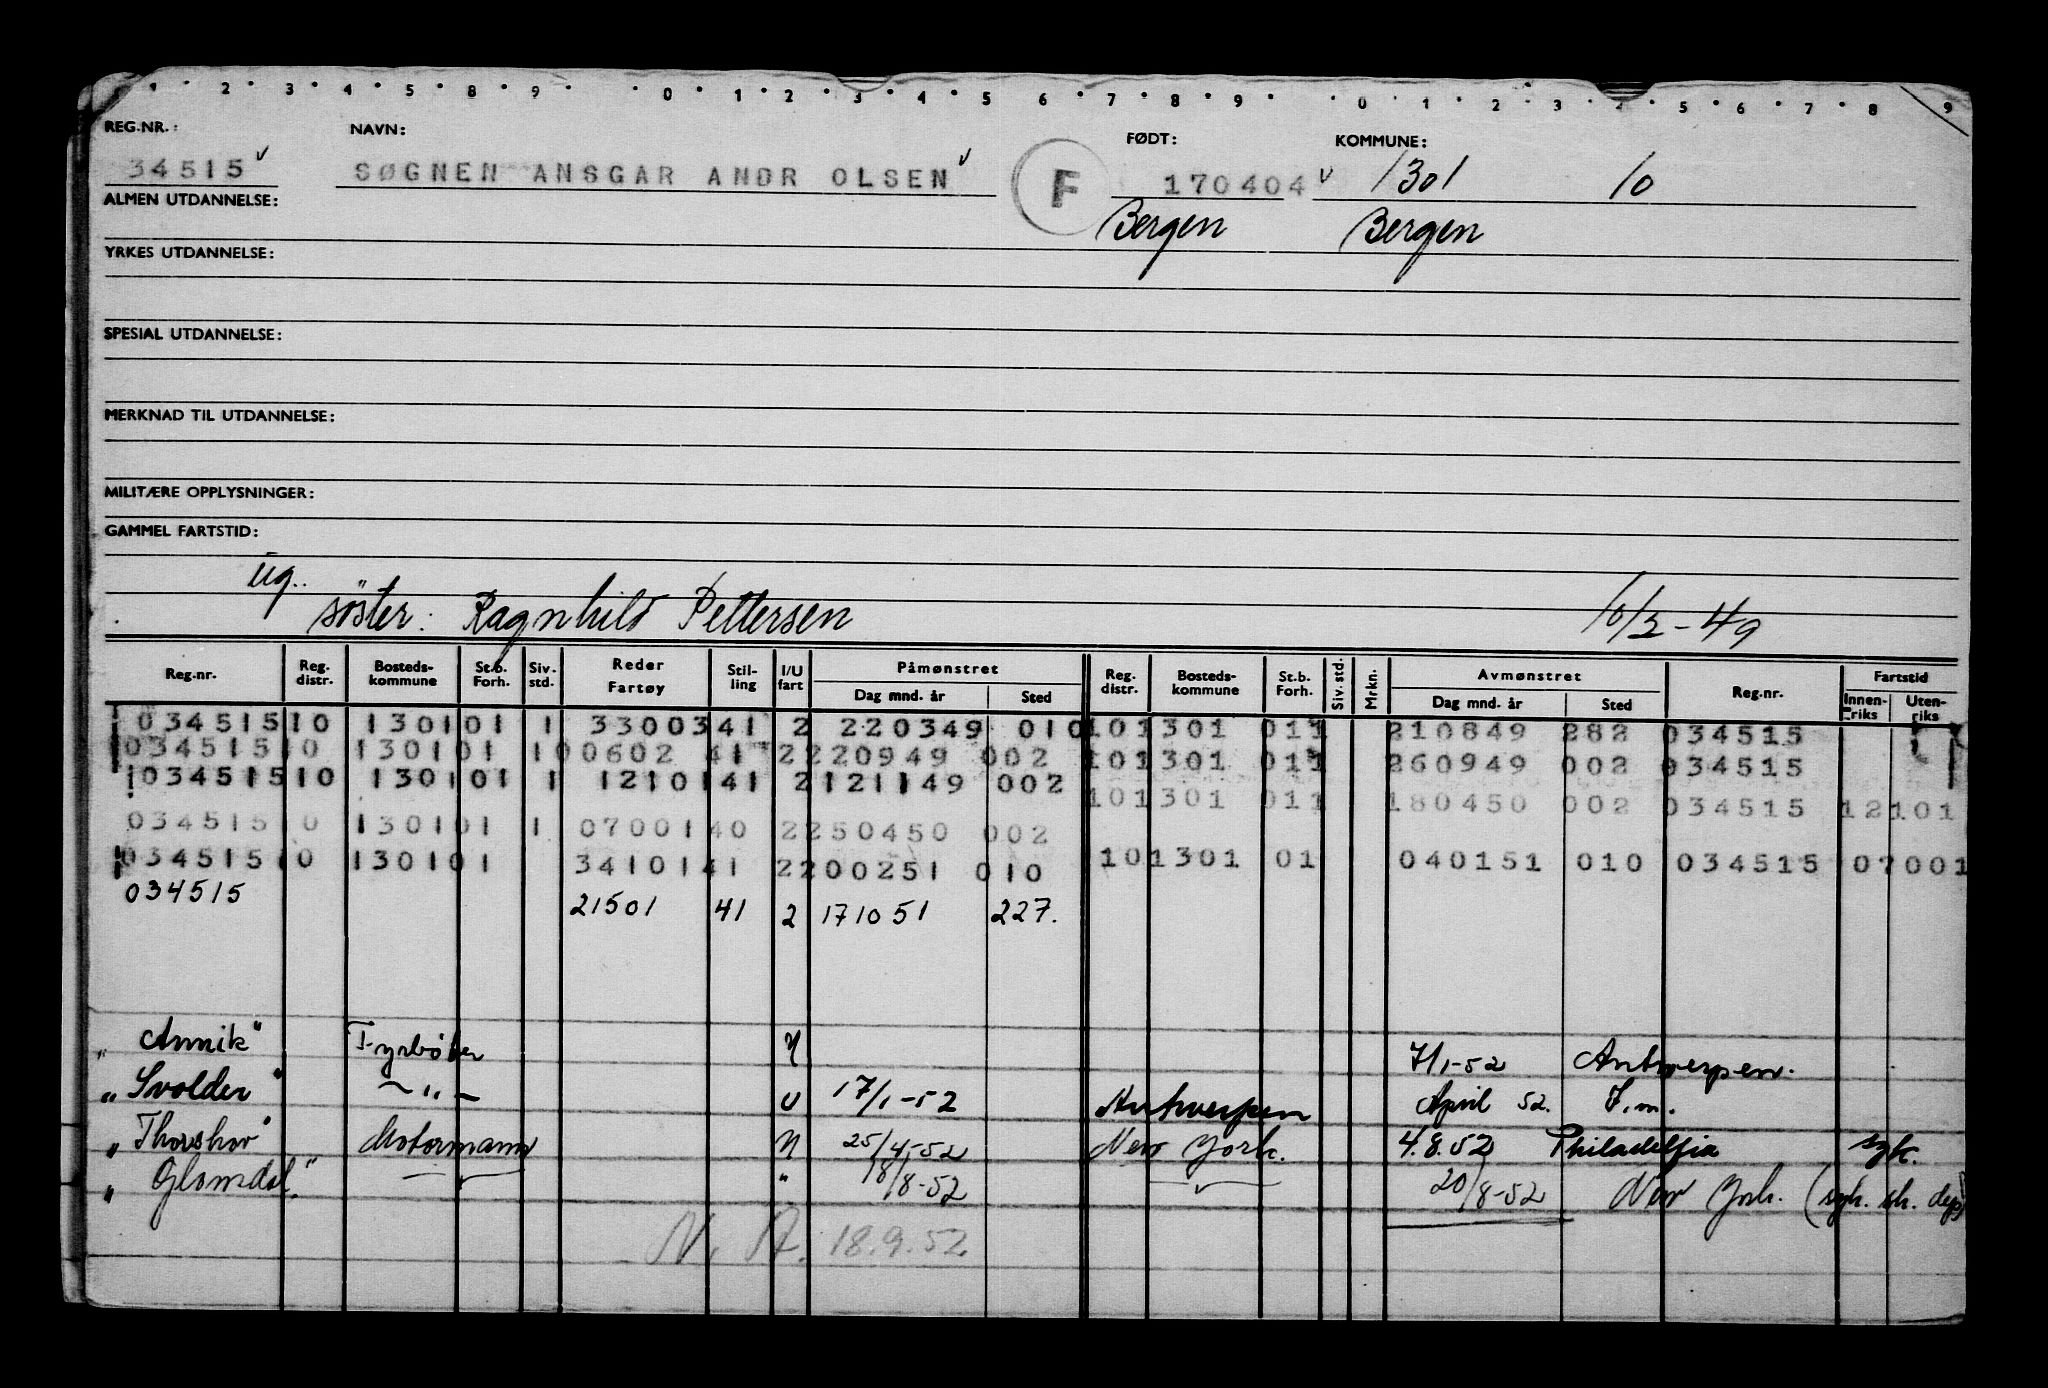 1 2 3 4 5 8 9 0 1 2 3 4 5 6 7 8 9 0 1 2 3 4 5 6 7 8 9
REG.NR.: NAVN: FØDT: KOMMUNE:
34515 SØGNEN ANSGAR ANDR OLSEN F 170404 1301 10
ALMEN UTDANNELSE: Bergen Bergen
YRKES UTDANNELSE:
SPESIAL UTDANNELSE:
MERKNAD TIL UTDANNELSE:
MILITÆRE OPPLYSNINGER:
GAMMEL FARTSTID:
ug.
søster: Ragnhild Pettersen 10/3-49
Reg.nr. Reg. distr. Bosteds-kommune St.b. Forh. Siv. std. Reder Fartøy Stil-ling I/U fart Påmønstret Dag mnd. år Sted Reg. distr. Bosteds-kommune St.b. Forh. Siv. std. Mrkn. Avmønstret Dag mnd. år Sted Reg.nr. Fartstid Innen-riks Uten-riks
034515 10 1301 01 1 33003 41 2 220349 010 10 1301 011 210849 282 034515
034515 10 1301 01 1 00602 41 2 220949 002 10 1301 011 260949 002 034515
034515 10 1301 01 1 12101 41 2 121149 002 10 1301 011 180450 002 034515 12101
034515 10 1301 01 1 07001 40 2 250450 002
034515 10 1301 01 34101 41 2 200251 010 10 1301 01 040151 010 034515 07001
034515 21501 41 2 171051 227.
„Annik" Fyrbøter U 7/1-52 Antwerpen.
„Svolder" -"- U 17/1-52 Antwerpen April 52. F.m.
„Thorshov" Motormann U 25/4-52 New York. 4.8.52 Philadelfia syk.
„Glomdal." " 18/8-52 20/8-52 New York. (syk. sk. dep)
N. A. 18.9.52